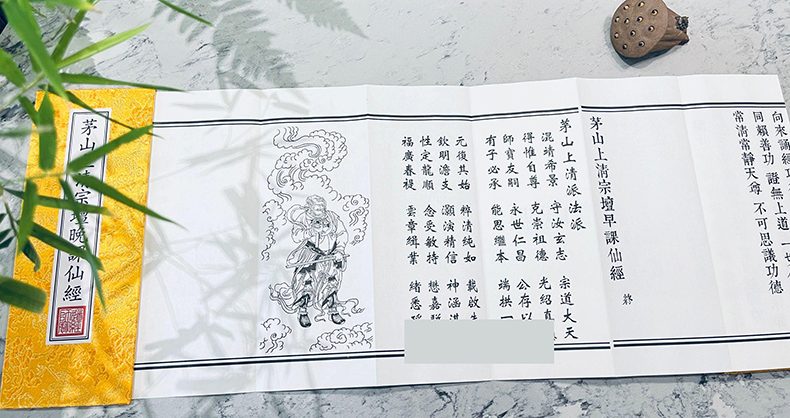 向來誦經
同賴善功 證無上道 一
常清常靜天尊 不可思議功德
茅山上清宗壇早課仙經 終
茅山上清派法派
混靖希景 守汝玄志 宗道大天
得惟自尊 克崇祖德 光紹真
師寶友嗣 永世仁昌 公存以
有子必承 能思繼本 端拱一
元復其始 粹清純如 載啟
欽明澹支 灝演精信 神涵
性定龍順 念受敏特 懋嘉
福廣春禔 雲章緝業 緒悉
茅山清宗壇晚課仙經